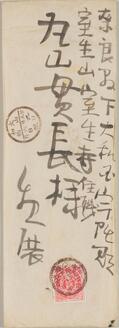 奈良縣下大和国宇陀郡
室生山室生寺住職
丸山貫長様
必展